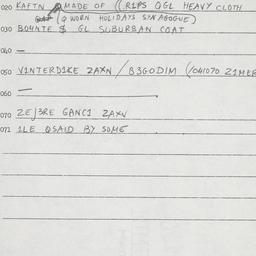 020 KAFTN MADE OF ((R1PS QGL HEAVY CLOTH
(Q WORN HOLIDAYS SYNAGOGUE)
030 BO4NTE $ GL SUBURBAN COAT
040 —
050 V1NTERD1KE ZAXN / B3GODIM (/041070 Z1MLB
060 —
070 ZEJ3RE GANC1 ZAXN
071 1LE QSAID BY SOME